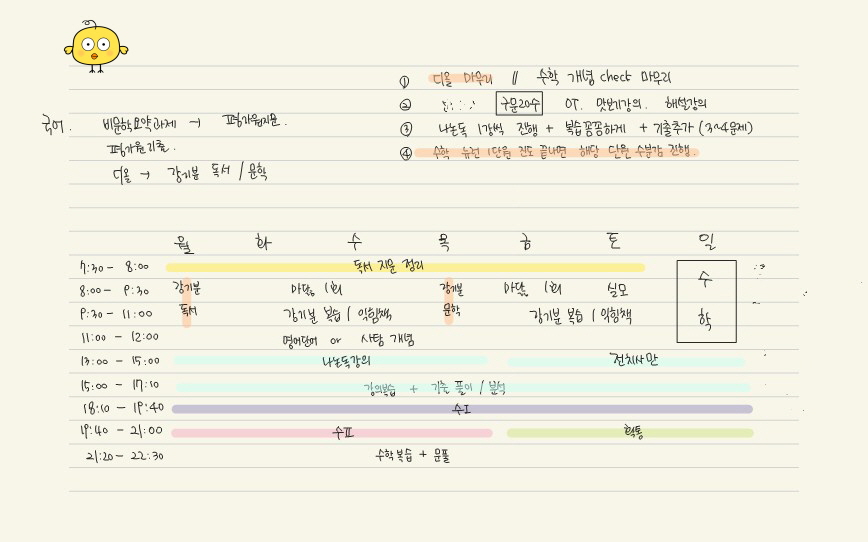 ① 디올 마무리 // 수학 개념 check 마무리
② 구문20수 OT. 맛보기강의. 해설강의
국어. 비문학요약과제 → 평가원지문.
③ 나논독 1강씩 진행 + 복습꼼꼼하게 + 기출추가 (3~4문제)
평가원기출.
④ 수학 뉴런 1단원 진도 끝나면 해당 단원 수분감 진행.
디올 → 강기분 독서 / 문학
월 화 수 목 금 토 일
7:30 - 8:00 독서 지문 정리
8:00 - 9:30 강기분 마닳 1회 강기분 마닳 1회 실모 수
9:30 - 11:00 독서 강기분 복습 / 익힘책 문학 강기분 복습 / 익힘책 학
11:00 - 12:00 영어단어 or 사탐 개념
13:00 - 15:00 나논독강의 전치사만
15:00 - 17:10 강의복습 + 기출 풀이 / 분석
18:10 - 19:40 수I
19:40 - 21:00 수II 확통
21:20 - 22:30 수학복습 + 문풀